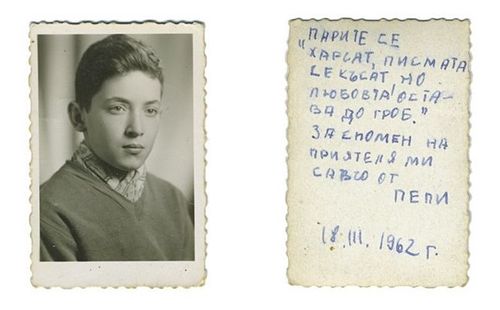 „ПАРИТЕ СЕ
ХАРЧАТ, ПИСМАТА
СЕ КЪСАТ, НО
ЛЮБОВТА ОСТА-
ВА ДО ГРОБ."
ЗА СПОМЕН НА
ПРИЯТЕЛЯ МИ
САВЧО ОТ
ПЕПИ
18.III.1962 г.